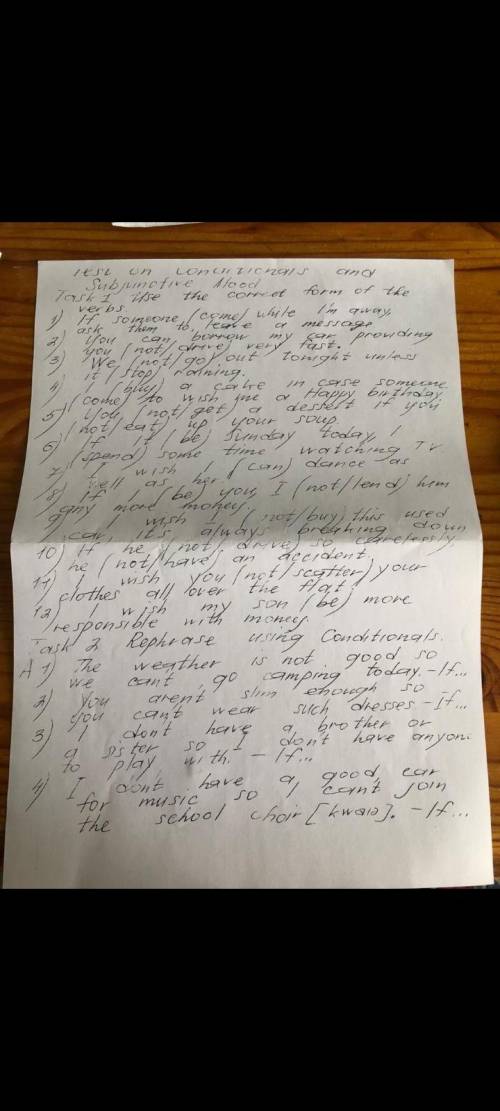 Test on Conditionals and
Subjunctive Mood
Task 1 Use the correct form of the
verbs.
1) If someone (come) while I'm away,
ask them to leave a message.
2) You can borrow my car providing
you (not/drive) very fast.
3) We (not/go) out tonight unless
it (stop) raining.
4) I (buy) a cake in case someone
(come) to wish me a Happy birthday.
5) You (not/get) a dessert if you
(not/eat) up your soup.
6) If it (be) Sunday today, I
(spend) some time watching TV.
7) I wish I (can) dance as
well as her.
8) If I (be) you, I (not/lend) him
any more money.
9) I wish I (not/buy) this used
car, it's always breaking down
10) If he (not drive) so carelessly,
he (not/have) an accident.
11) I wish you (not/scatter) your
clothes all over the flat;
12) I wish my son (be) more
responsible with money.
Task 2 Rephrase using Conditionals.
A 1) The weather is not good so
we can't go camping today. - If...
2) You aren't slim enough so
you can't wear such dresses - If...
3) I don't have a brother or
a sister so I don't have anyone
to play with. - If...
4) I don't have a good ear
for music so I can't join
the school choir [kwaiə]. - If...